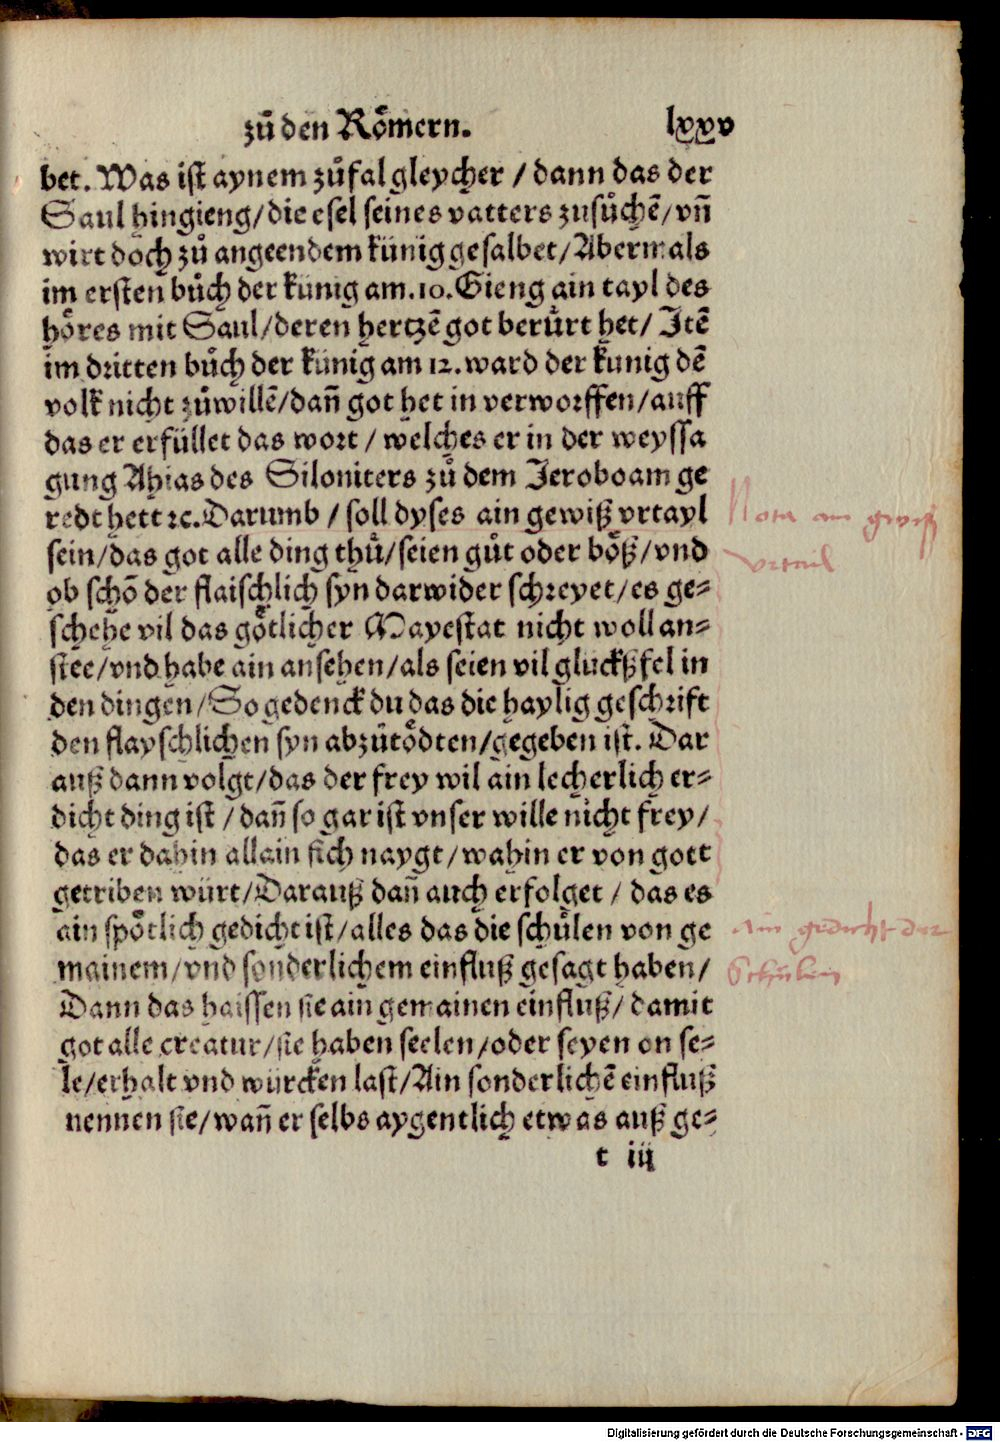 zů den Rǒmern. lxxv
bet. Was ist aynem zůfal gleycher / dann das der
Saul hingieng/die esel seines vatters zusůchē/vn̄
wirt doch zů angeendem künig gesalbet/Abermals
im ersten bůch der künig am.10.Gieng ain tayl des
hǒres mit Saul/deren hertzē got berůrt het/ Jtē
im dritten bůch der künig am 12.ward der kunig dē
volk nicht zůwillē/dan̄ got het in verworffen/auff
das er erfüllet das wort / welches er in der weyssa
gung Ahias des Siloniters zů dem Jeroboam ge
redt hett ꝛc.Darumb / soll dyses ain gewiß vrtayl
sein/das got alle ding thů/seien gůt oder bǒß/vnd
ob schō der flaischlich syn darwider schreyet/es ge⸗
schehe vil das gǒtlicher Mayestat nicht woll an⸗
stee/vnd habe ain ansehen/als seien vil gluckßfel in
den dingen/So gedenck du das die haylig geschrift
den flayschlichen syn abzůtǒdten/gegeben ist. Dar
auß dann volgt/das der frey wil ain lecherlich er⸗
dicht ding ist / dan̄ so gar ist vnser wille nicht frey/
das er dahin allain sich naygt/wahin er von gott
getriben würt/Darauß dan̄ auch erfolget / das es
ain spǒtlich gedicht ist/alles das die schůlen von ge
mainem/vnd sonderlichem einfluß gesagt haben/
Dann das haissen sie ain gemainen einfluß/ damit
got alle creatur/sie haben seelen/oder seyen on se⸗
le/erhalt vnd würcken last/Ain sonderlichē einfluß
nennen sie/wan̄ er selbs aygentlich etwas auß ge⸗
t iij
Nota ain gewiß
vrtail
Ain gedicht der
Schulen
Digitalisierung gefördert durch die Deutsche Forschungsgemeinschaft - DFG